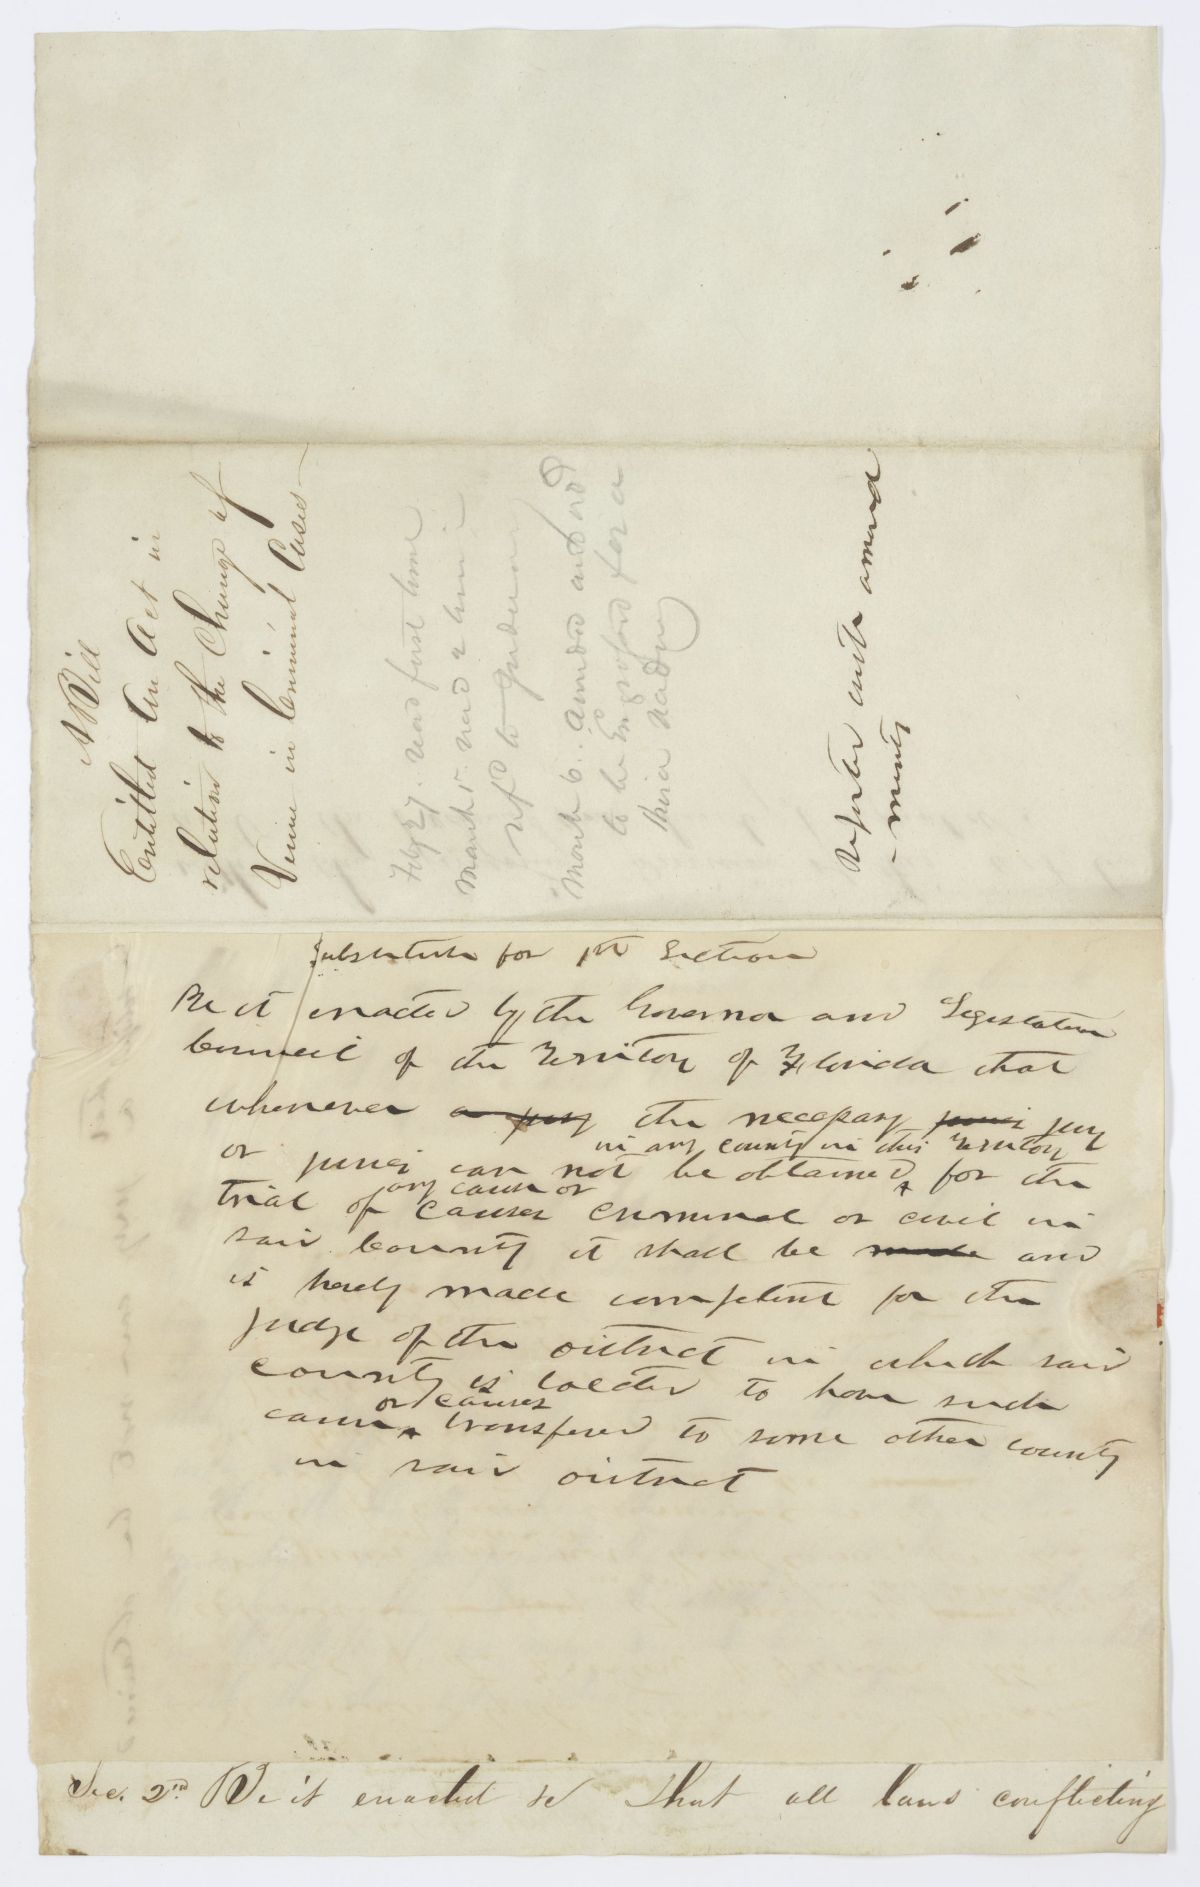 A Bill
Entitled An Act in
relation to the Change of
Venue in Criminal Cases
Feby 27. read first time
March 5. read 2 time
refd to
March 6. Amended and ord
to be Engrossed for a
third reading
Reported with amend
-ments
Substitute for 1st Section
Be it enacted by the Governor and Legislative
Council of the Territory of Florida that
whenever a jury the necessary juries jury
in any county in this Territory
or juries can not be obtained ^ for the
any cause or
trial of causes criminal or civil in
said County it shall be made and
is herely made competent for the
judge of the district in which said
county is located to have such
or causes
cause ^ transfered to some other county
in said district
Sec. 2nd Be it enacted &c That all laws conflicting